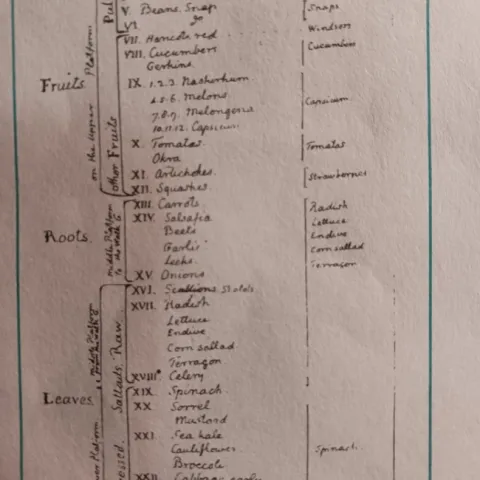 V. Beans. Snap
Snaps
VI. do
Windsor
VII. Haricots. red
VIII. Cucumbers
Cucumbers
Gerkins.
Fruits
on the Upper Platform
Other Fruits
IX. 1.2.3. Nasturtium
4.5.6. Melons
7.8.9. Melongena
10.11.12. Capsicum
Capsicum
X. Tomatas.
Tomatas
Okra
XI. Artichokes.
Strawberries
XII. Squashes
XIII. Carrots.
Radish
XIV. Salsafia
Lettuce
Roots.
Middle Platform
Beets
Endive
Garlic
Corn sallad
Leeks.
Terragon
XV. Onions
XVI. Scallions.
XVII. Radish
Lettuce
Endive
Corn sallad
Terragon
XVIII. Celery
Leaves
Sallads. Raw
XIX. Spinach.
XX. Sorrel
Mustard
XXI. Sea kale
Cauliflower.
Spinach.
Broccoli
XXII. Cabbage. early